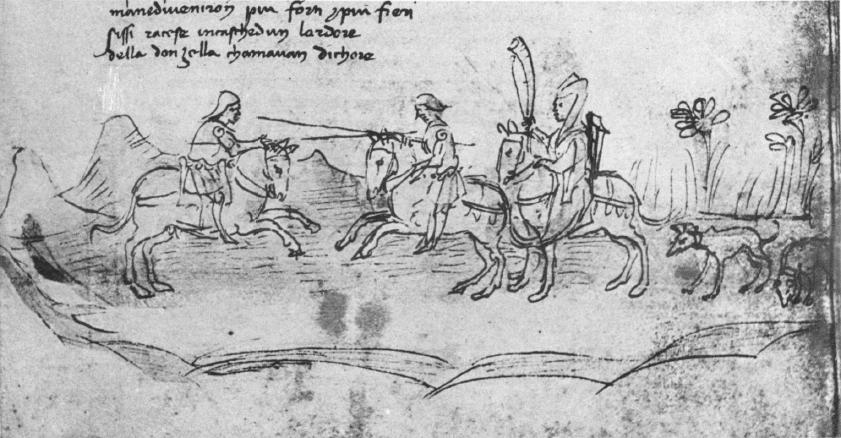 manediveniron piu forti ⁊piu fieri
sissi racese incaschedun lardore
della donzella chamavan dichore